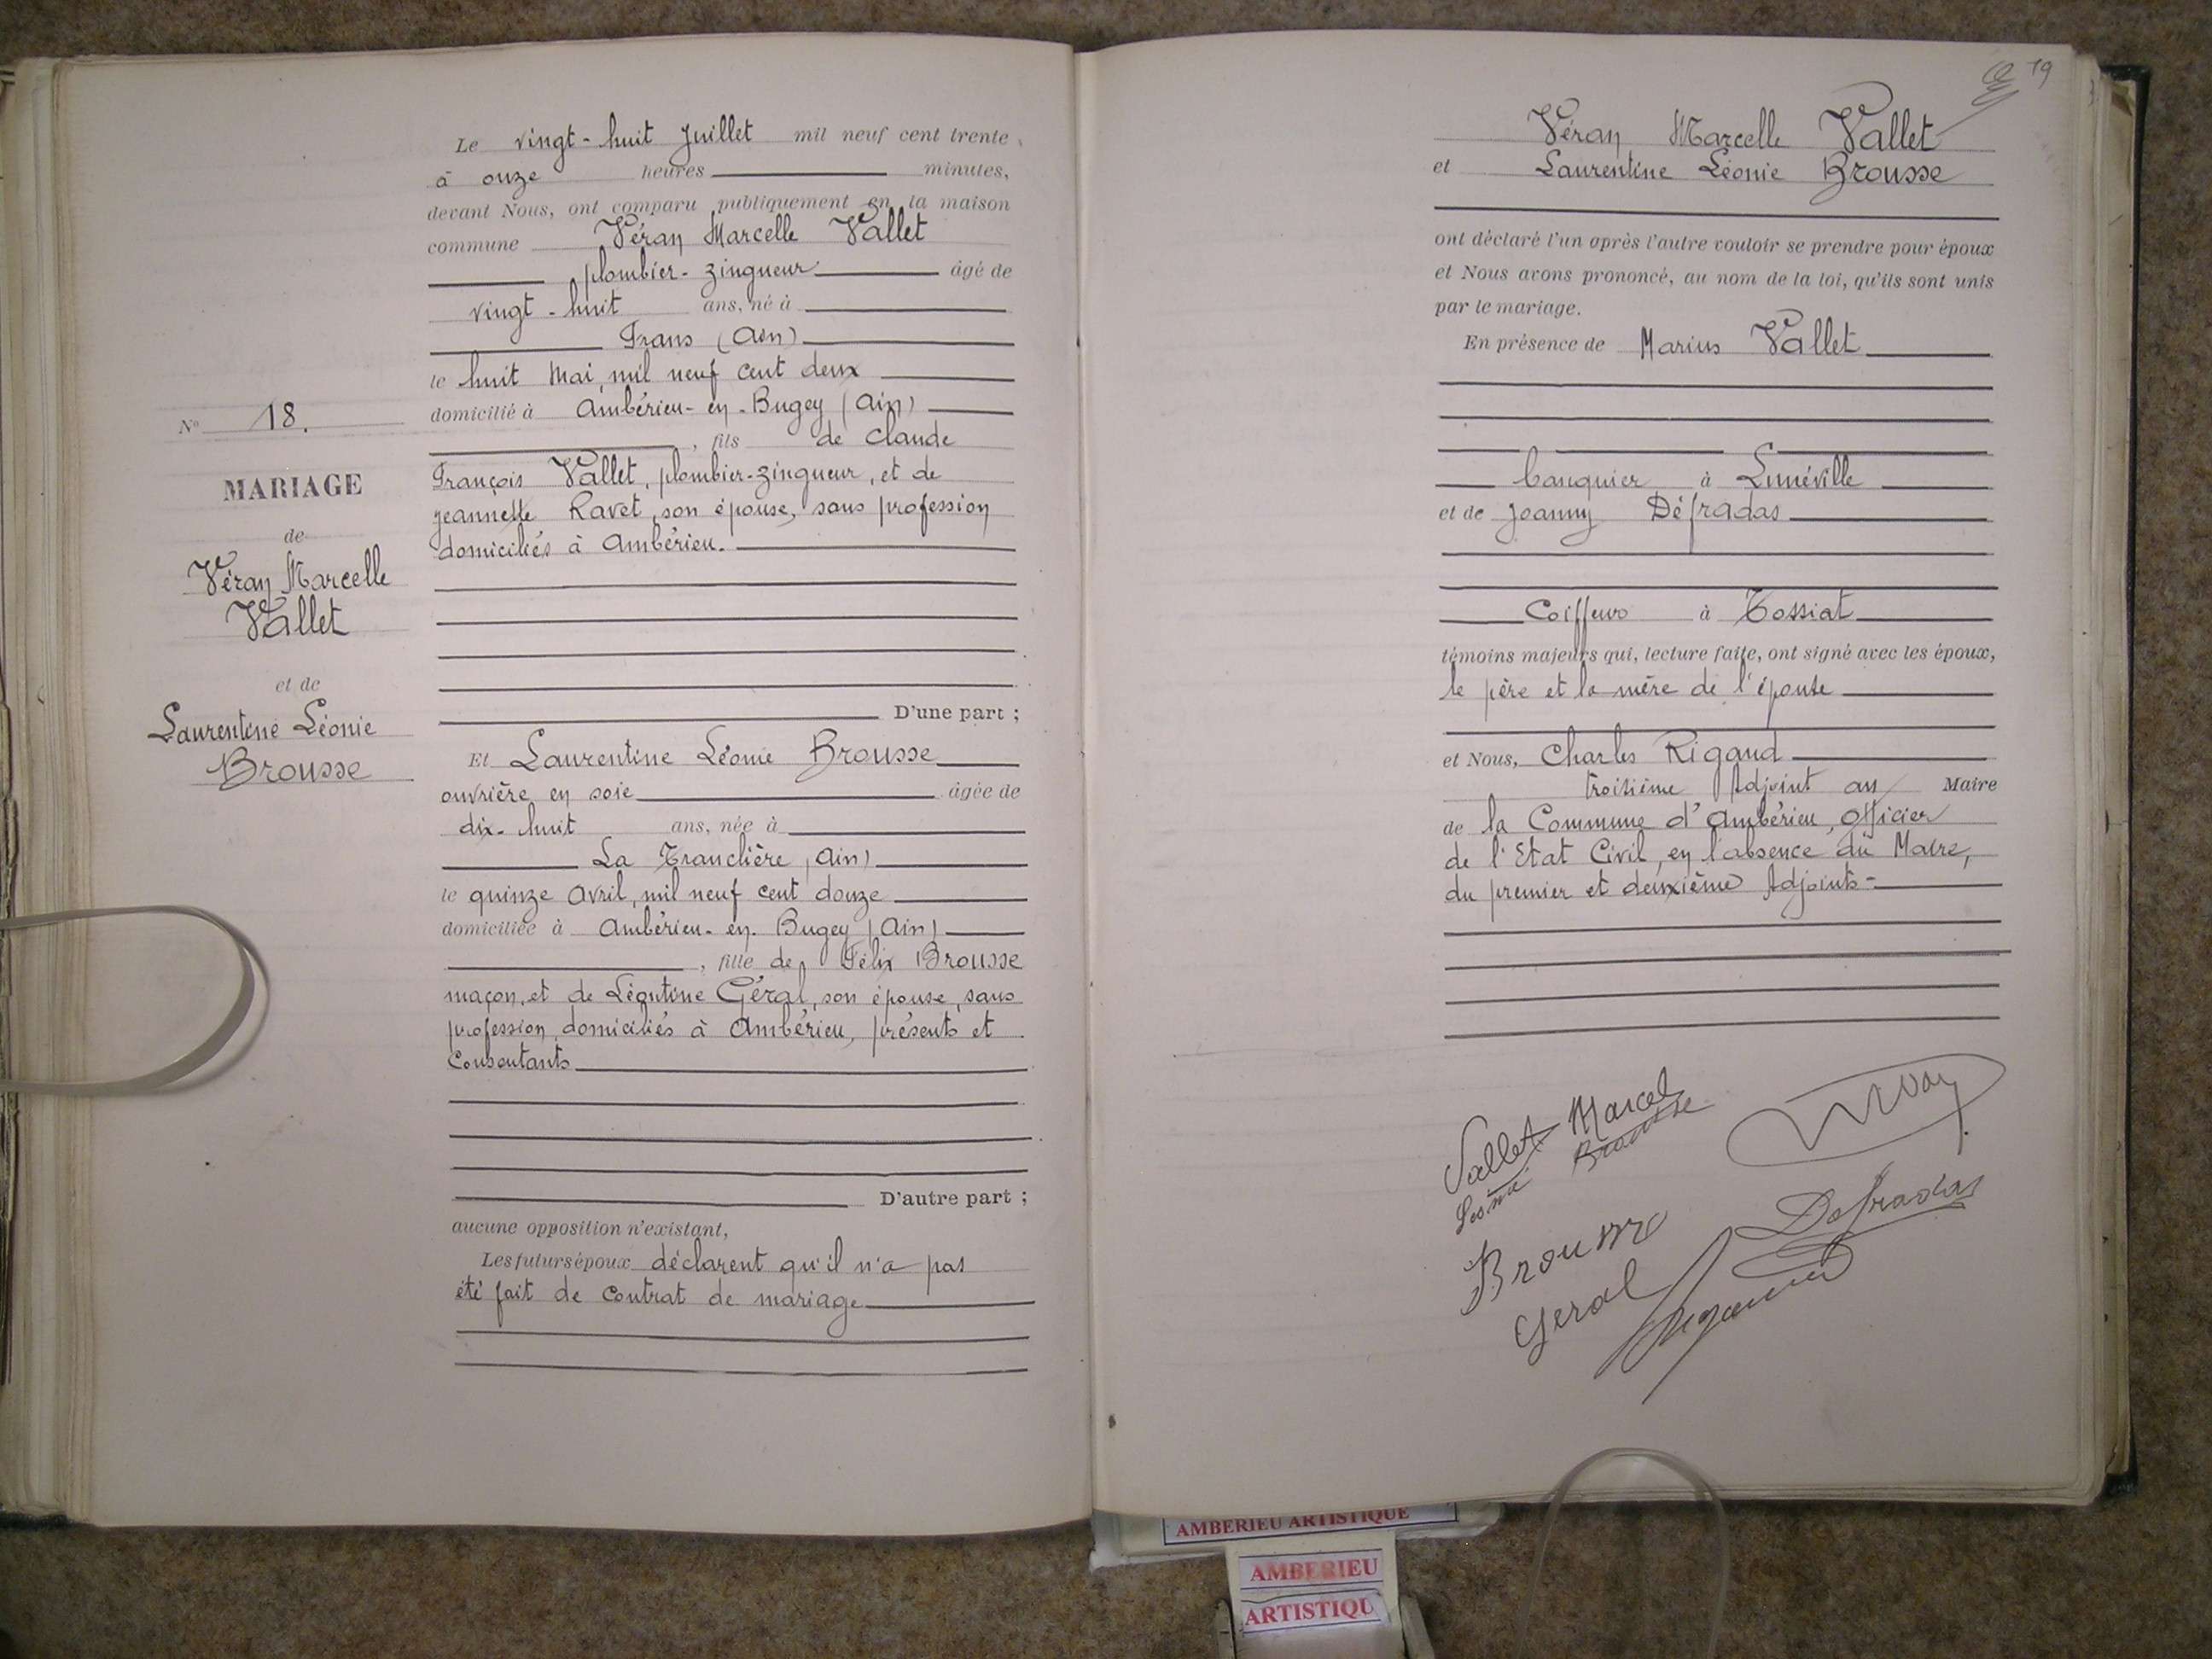 Le vingt-huit Juillet mil neuf cent trente
à onze heures minutes,
devant Nous, ont comparu publiquement en la maison
commune Véran Marcelle Vallet
plombier-zingueur âgé de
vingt-huit ans, né à
Frans (Ain)
le huit Mai, mil neuf cent deux
domicilié à Ambérieu-en-Bugey (Ain)
, fils de Claude
François Vallet, plombier-zingueur, et de
Jeannette Ravet, son épouse, sans profession
domiciliés à Ambérieu.
D'une part ;
Et Laurentine Léonie Brousse
ouvrière en soie âgée de
dix-huit ans, née à
La Tranclière (Ain)
le quinze Avril, mil neuf cent douze
domiciliée à Ambérieu-en-Bugey (Ain)
, fille de Félix Brousse
maçon, et de Léontine Géral, son épouse, sans
profession, domiciliés à Ambérieu, présents et
Consentants
D'autre part ;
aucune opposition n'existant,
Les futurs époux déclarent qu'il n'a pas
été fait de Contrat de mariage
N° 18.
MARIAGE
de
Véran Marcelle
Vallet
et de
Laurentine Léonie
Brousse
19
Véran Marcelle Vallet
et Laurentine Léonie Brousse
ont déclaré l'un après l'autre vouloir se prendre pour époux
et Nous avons prononcé, au nom de la loi, qu'ils sont unis
par le mariage.
En présence de Marius Vallet
banquier à Lunéville
et de Joanny Défradas
Coiffeur à Tossiat
témoins majeurs qui, lecture faite, ont signé avec les époux,
le père et la mère de l'épouse
et Nous, Charles Rigaud
troisième Adjoint au Maire
de la Commune d'Ambérieu, Officier
de l'Etat Civil, en l'absence du Maire,
du premier et deuxième Adjoints-
Vallet Marcel
Léonie Brousse
Brousse
Defradas
Geral
AMBERIEU ARTISTIQUE
AMBERIEU
ARTISTIQU